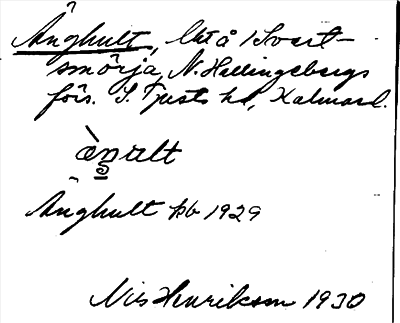 Änghult, lht å Svart-
smörja, N. Hellingebergs
förs. S. Tjusts hd, Kalmar l.
äŋalt
Änghult kb 1929
Nils Henrikson 1930